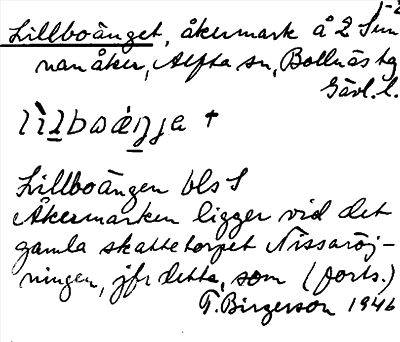 1-2
Lillboänget, åkermark å 2 Sun
nanåker, Alfta sn, Bollnäs tg
Gävl. l.
lìlboäŋja +
Lillboängen bls 1
Åkermarken ligger vid det
gamla skattetorpet Nissaröj-
ningen, jfr detta, som (forts.)
T. Birgerson 1946